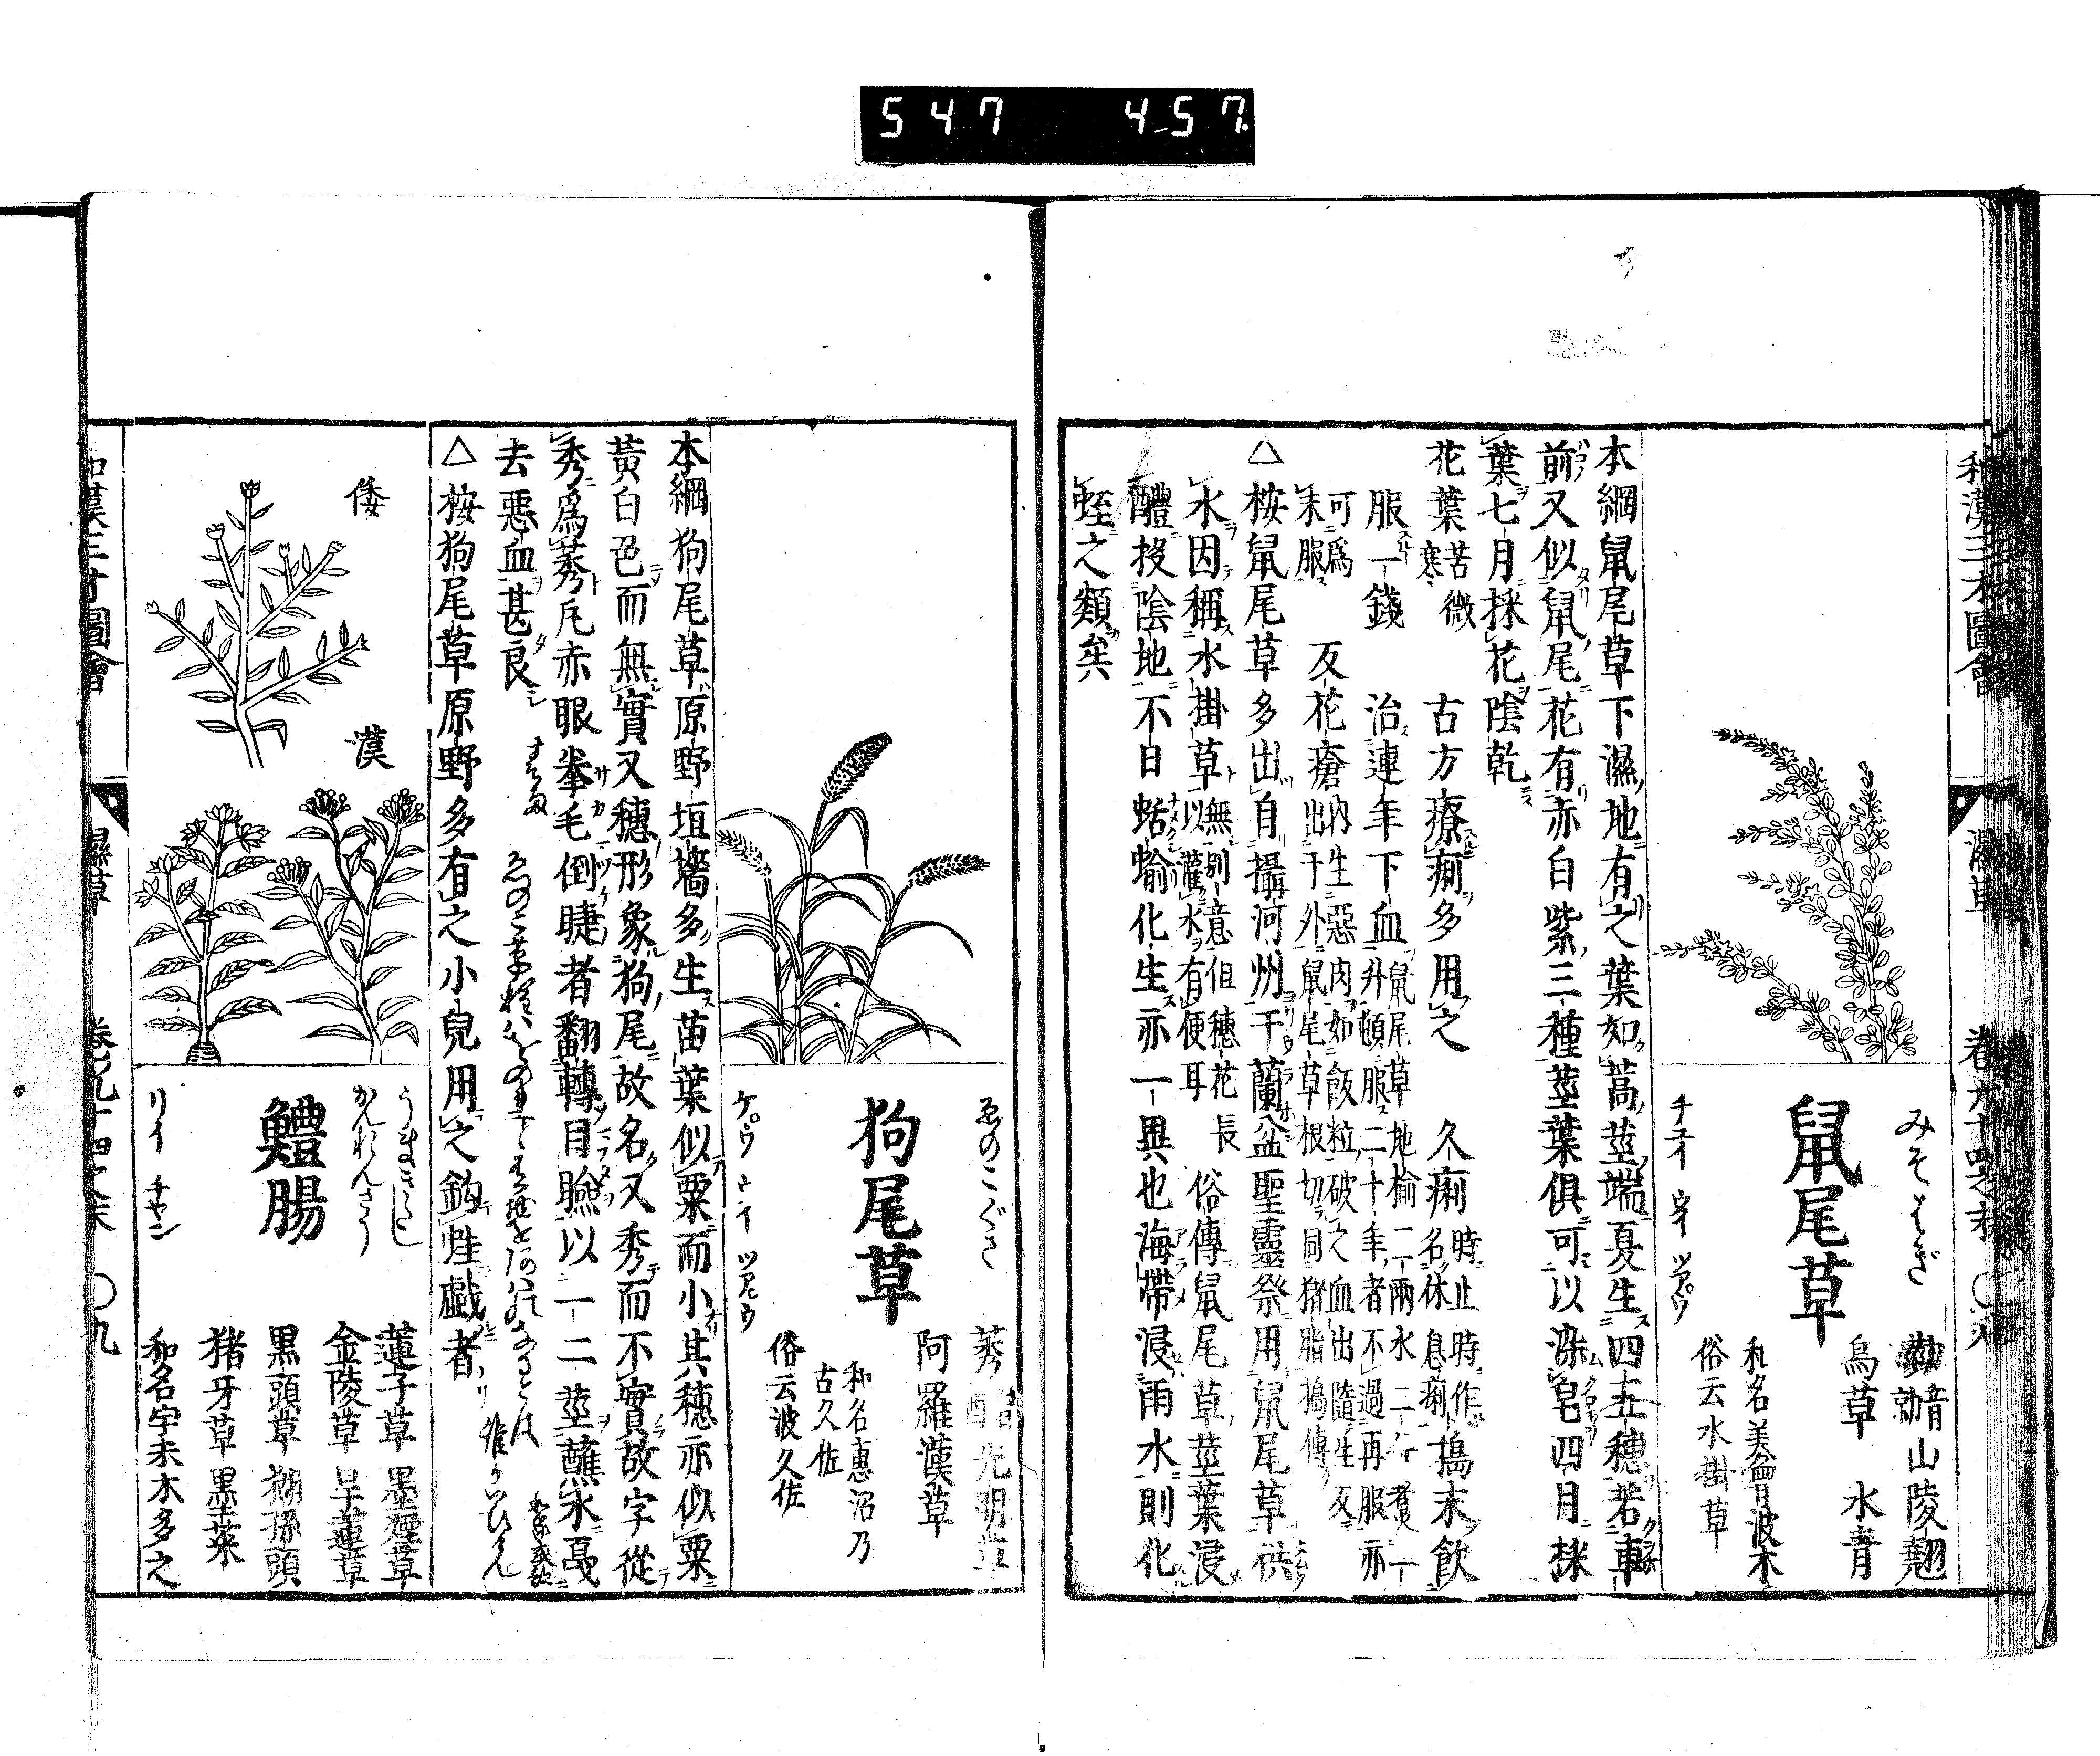 547 457
和漢三才圖會 濕草 卷九十四之末 〇九
みそはぎ
鼠尾草
チユイ ウイ ツアウ
山陵翹
烏草 水青
和名美曾波木
俗云水掛草
本綱鼠尾草下濕地有之葉如蒿莖端夏生四五穗若車
前又似鼠尾花有赤白紫三種莖葉俱可以染皂四月採
葉七月採花陰乾
花葉苦微寒 古方療痢多用之 久痢時止時作名休息痢搗末飲
服一錢 治連年下血鼠尾草地榆二兩水二升煮一升頓服二十年者不過再服亦
可為末服 反花瘡內生惡肉如飯粒破之血出隨生反出于外鼠尾草根切同猪脂搗傅
△桉鼠尾草多出自攝河州干蘭盆聖靈祭用鼠尾草供
水因稱水掛草無別意但穗花長以灌水有便耳 俗傳鼠尾草莖葉浸
醴投陰地不日蛞蝓化生亦一異也海帶浸雨水則化
蛭之類矣
ゑのこぐさ
狗尾草
ケ゚ウ ウイ ツアウ
莠 光明草
阿羅漢草
和名惠沼乃古久佐
俗云波久佐
本綱狗尾草原野垣墻多生苗葉似粟而小其穗亦似粟
黃白色而無實又穗形象狗尾故名又秀而不實故字從
秀為莠凡赤眼拳毛倒睫者翻轉目瞼以一二莖蘸水戛
去惡血甚良
△桉狗尾草原野多有之小兒用之釣蛙戯者
倭
漢
うなぎくし
かんれんさう
鱧腸
リイ チヤン
蓮子草 墨煙草
金陵草 旱蓮草
黑頭草 猢孫頭
猪牙草 墨菜
和名宇末木多之
和漢三才圖會 濕草 卷九十四之末 〇九